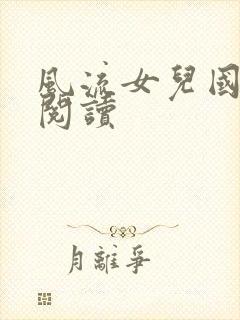 風流女兒國
閱讀
月離爭